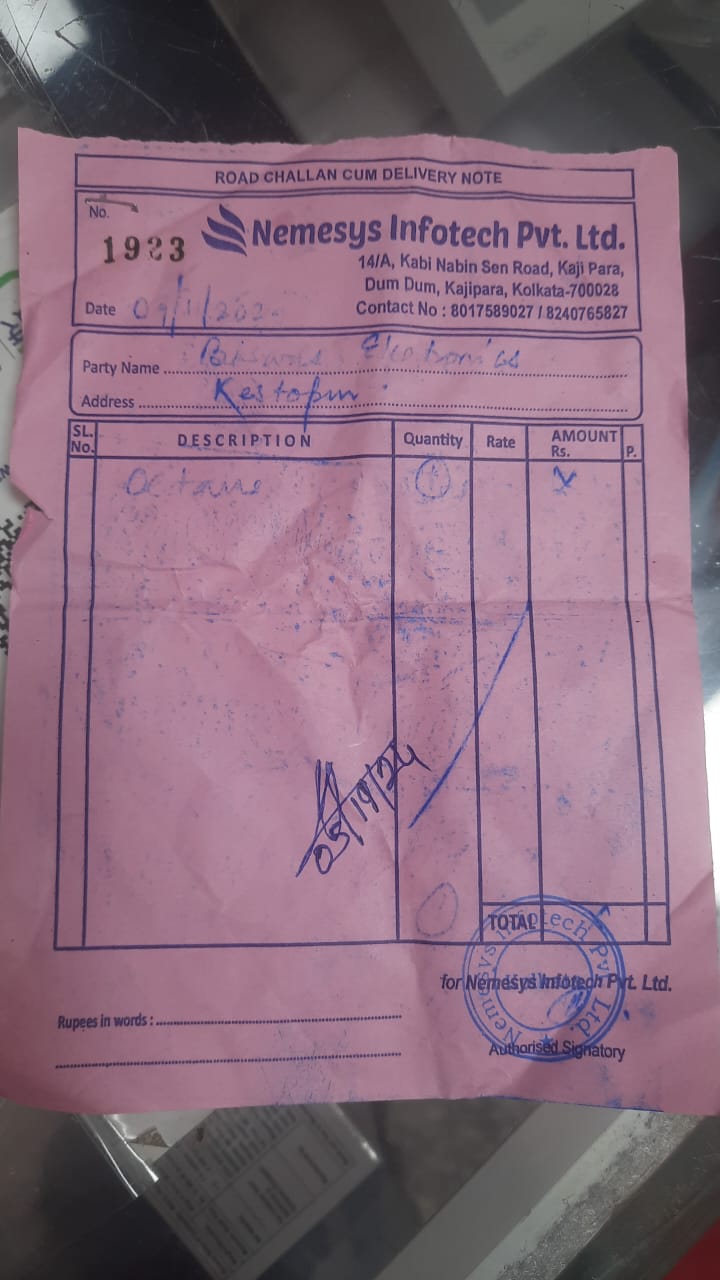 ROAD CHALLAN CUM DELIVERY NOTE
No.
1923
Nemesys Infotech Pvt. Ltd.
14/A, Kabi Nabin Sen Road, Kaji Para,
Dum Dum, Kajipara, Kolkata-700028
Contact No : 8017589027 / 8240765827
Date
Party Name
Address Kestopur
SL. No. DESCRIPTION Quantity Rate AMOUNT Rs. P.
Octane 1
TOTAL
Nemesys Infotech Pvt. Ltd.
for Nemesys Infotech Pvt. Ltd.
Rupees in words :
Authorised Signatory